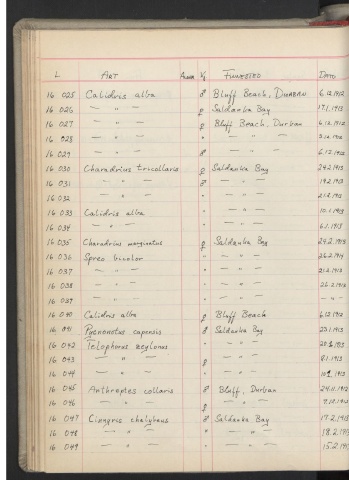 L ART Anm. FUNDSTED DATO
16 025 Calidris alba ♂ Bluff Beach, DURBAN 6.12.1912
16 026 — " — ♀ Saldanha Bay 17.1.1913
16 027 — " — ♀ Bluff Beach, Durban 6.12.1912
16 028 — " — " — " — 5.12.1912
16 029 — " — ♂ — " — 6.12.1912
16 030 Charadrius tricollaris ♀ Saldanha Bay 24.2.1913
16 031 — " — ♂ — " — 19.2.1913
16 032 — " — " — " — 21.2.1913
16 033 Calidris alba " — " — 10.1.1913
16 034 — " — " — " — 6.1.1913
16 035 Charadrius marginatus ♀ Saldanha Bay 24.2.1913
16 036 Spreo bicolor " — " — 26.2.1914
16 037 — " — " — " — 21.2.1913
16 038 — " — " — " — 26.2.1913
16 039 — " — " — " — — " —
16 040 Calidris alba ♀ Bluff Beach 6.12.1912
16 041 Pycnonotus capensis ♂ Saldanha Bay 23.1.1913
16 042 Telophorus zeylonus " — " — 1913
16 043 — " — ♀ — " — 8.1.1913
16 044 — " — " — " — 1913
16 045 Anthreptes collaris ♂ Bluff, Durban 24.11.1912
16 046 — " — ♀ — " — 9.12.1912
16 047 Cinnyris chalybeus ♂ Saldanha Bay 17.2.1913
16 048 — " — " — " — 18.2.1913
16 049 — " — " — " — 15.2.1913